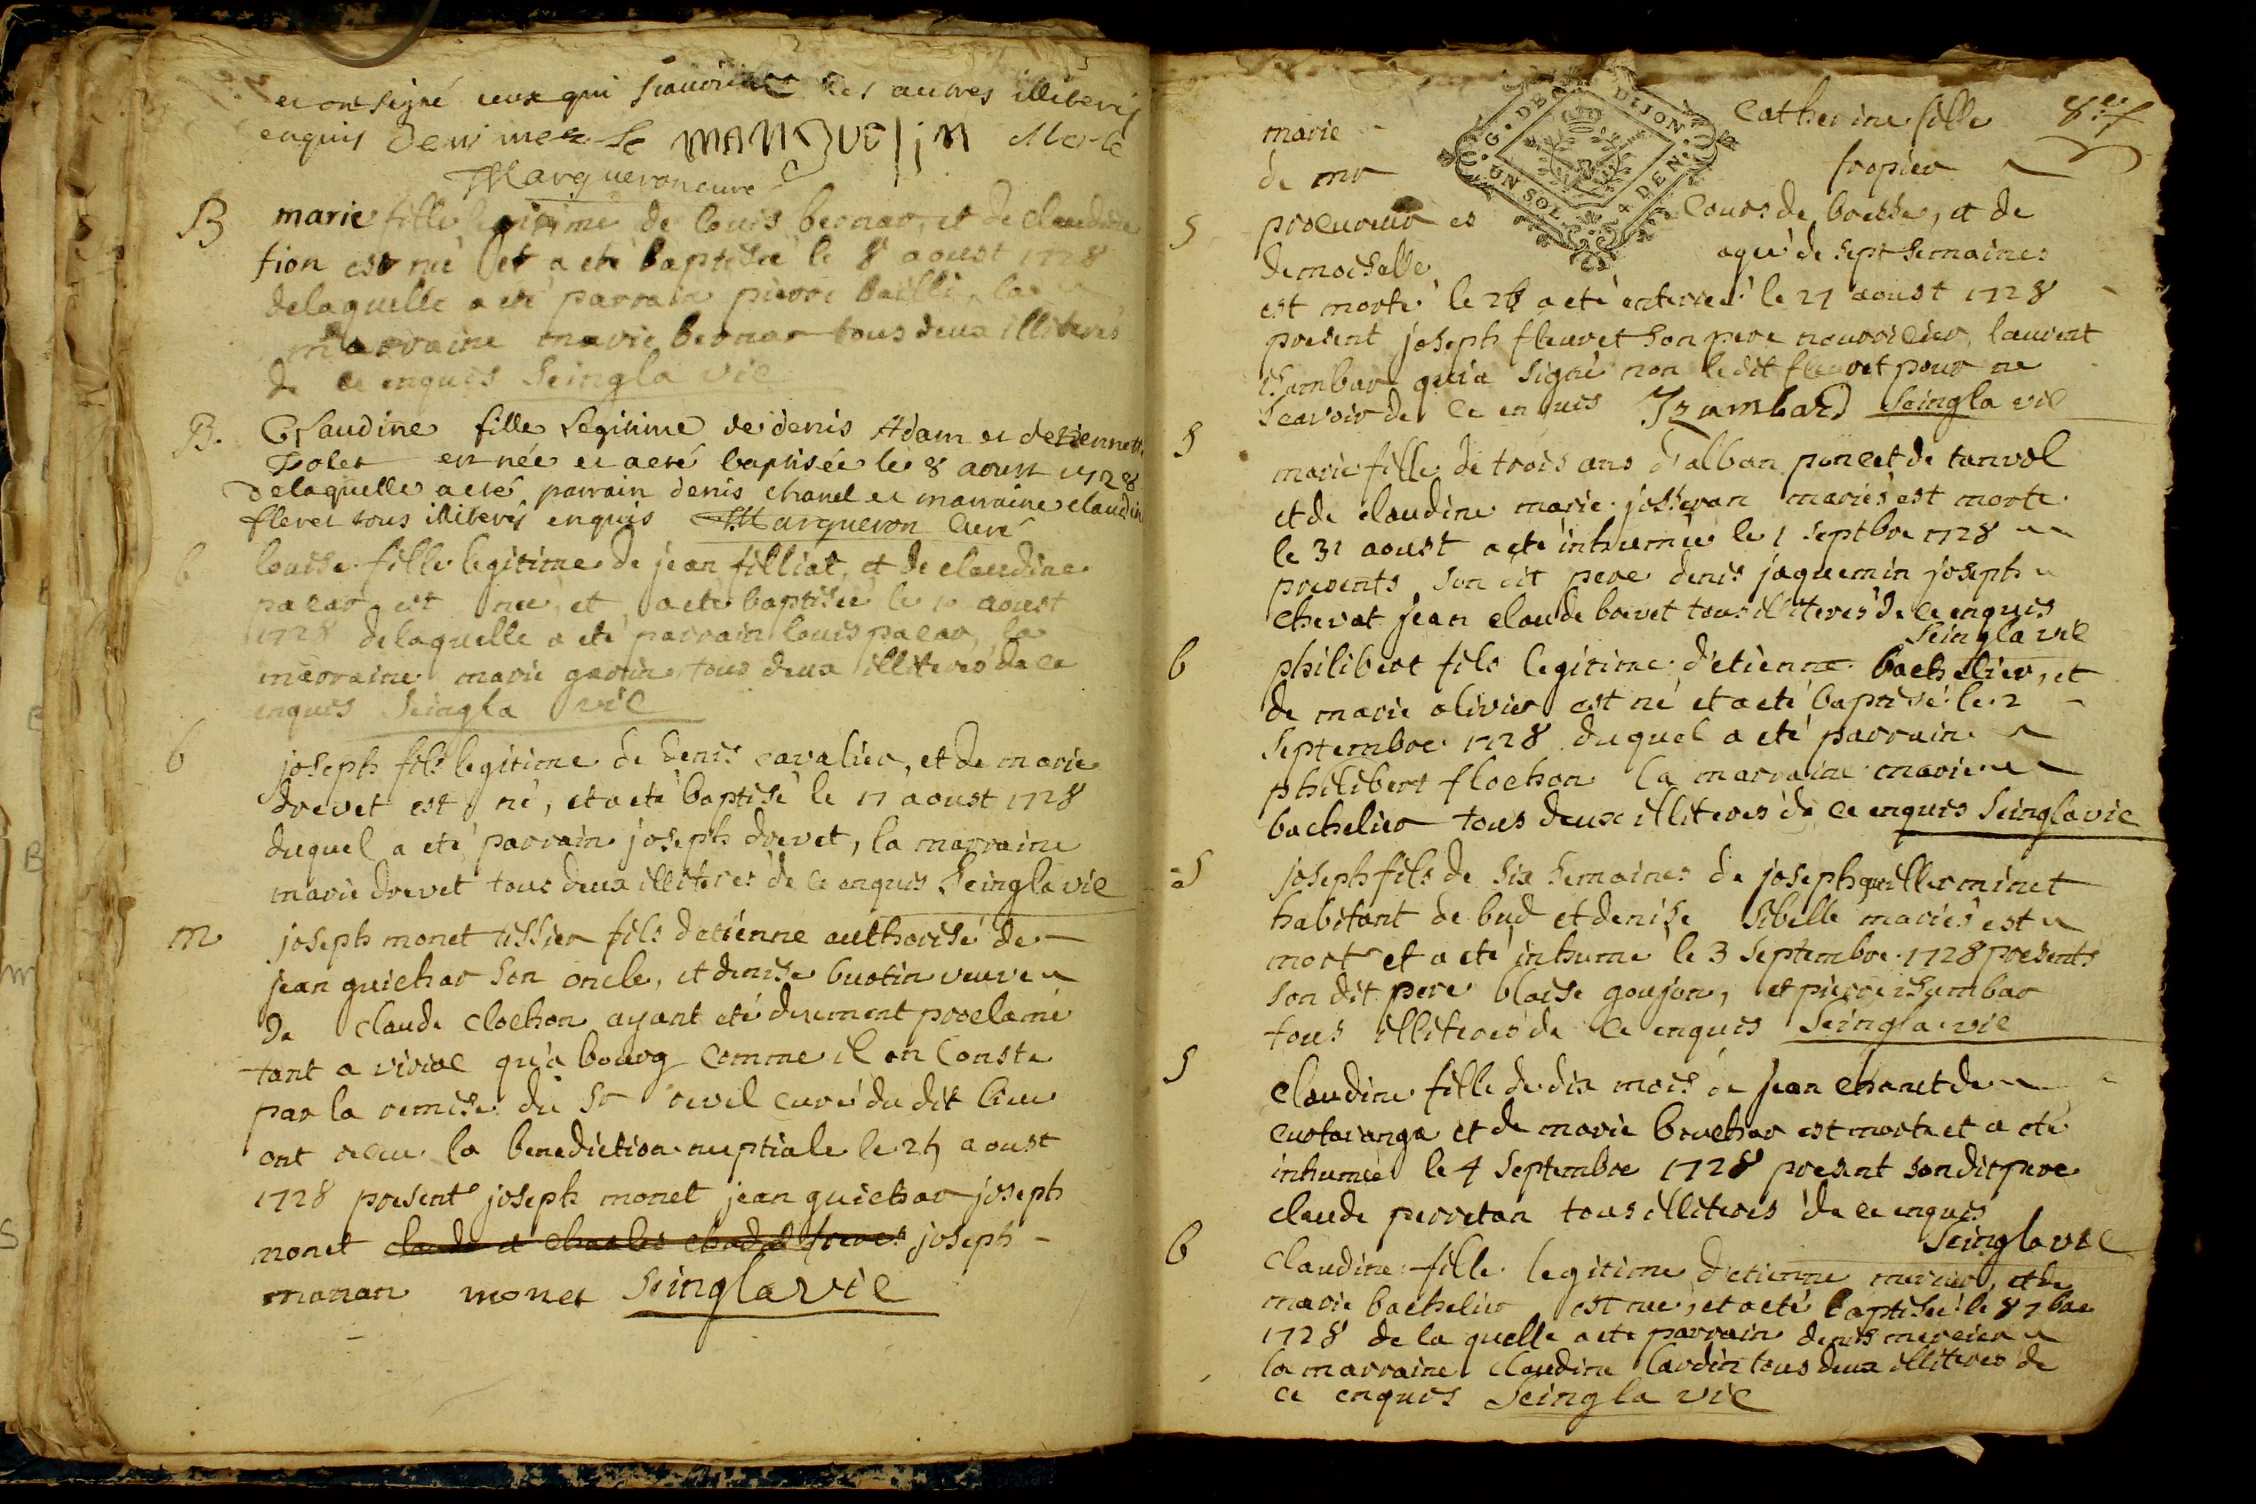 et ont signé ceux qui les autres illiterés
enquis denis mer MANGUELIN Merle
Margueron curé
B marie fille legitime de louis bernar, et de claudine
fion est nee et a eté baptisée le 8 aoust 1728
delaquelle a eté parrain pierre bailli, la
marraine marie bernar tous deux illiterés
de ce enquis Seinglavie
B. Claudine fille legitime de denis Adam et detiennette
est née et a eté baptisée le 8 aoust 1728
delaquelle a eté parrain denis chanel et marraine claudine
fleret tous illiterés enquis Margueron Curé
b louise fille legitime de jean filliat, et de claudine
pacar est nee, et a eté baptisée le 10 aoust
1728 delaquelle a eté parrain louis pacar, la
marraine marie garin tous deux illiterés de ce
enquis Seinglavie
b joseph fils legitime de denis cavalier, et de marie
drevet est né, et a eté baptisé le 17 aoust 1728
duquel a eté parrain joseph drevet, la marraine
marie drevet tous deux illiterés de ce enquis Seinglavie
m joseph monet tissier fils detienne authorisé de
jean guichar son oncle, et denise buotin veuve
de claude clochon ayant eté duement proclamé
tant a viriac qu'a bourg comme il en conste
par la remise du Sr revel curé du dit lieu
ont receu la benediction nuptiale le 24 aoust
1728 present joseph monet jean guichar joseph
monet claude et charles chadal freres joseph
monan monet Seinglavie
marie Catherine fille
de mr tropier
S procureur es Cours de bresse, et de
demoiselle agee de sept semaines
est morte le 26 a eté enterrée le 27 aoust 1728
present joseph fleuret son pere nourricier, laurent
isambar qui a signé non le dit fleuret pour ne
scavoir de ce enquis Izambard Seinglavie
S marie fille de trois ans d'alban poncet de tanvol
et de claudine marie josseran mariés est morte
le 31 aoust a eté inhumée le 1 septbre 1728
presents son dit pere denis jaquemin joseph
chevat jean claude borvet tous illiterés de ce enquis
Seinglavie
b philibert fils legitime d'etienne bachelier, et
de marie olivier est né et a eté baptisé le 2
septembre 1728 duquel a eté parrain
philibert flochon la marraine marie
bachelier tous deux illiterés de ce enquis Seinglavie
S joseph fils de six semaines de joseph guillerminet
habitant de bud et denise sibelle mariés est
mort et a eté inhumé le 3 septembre 1728 presents
son dit pere blaise goujon, et pierre isambar
tous illiterés de ce enquis Seinglavie
S claudine fille de dix mois de jean chanet de
curtaranga et de marie bruchar est morte et a eté
inhumée le 4 septembre 1728 present son dit pere
claude perretan tous illiterés de ce enquis
Seinglavie
b claudine fille legitime d'etienne mercier, et de
marie bachelier est nee, et a eté baptisée le 8 7bre
1728 de la quelle a eté parrain denis mercier
la marraine claudine lardin tous deux illiterés de
ce enquis Seinglavie
G. DE DIJON
UN SOL. 4 DEN.